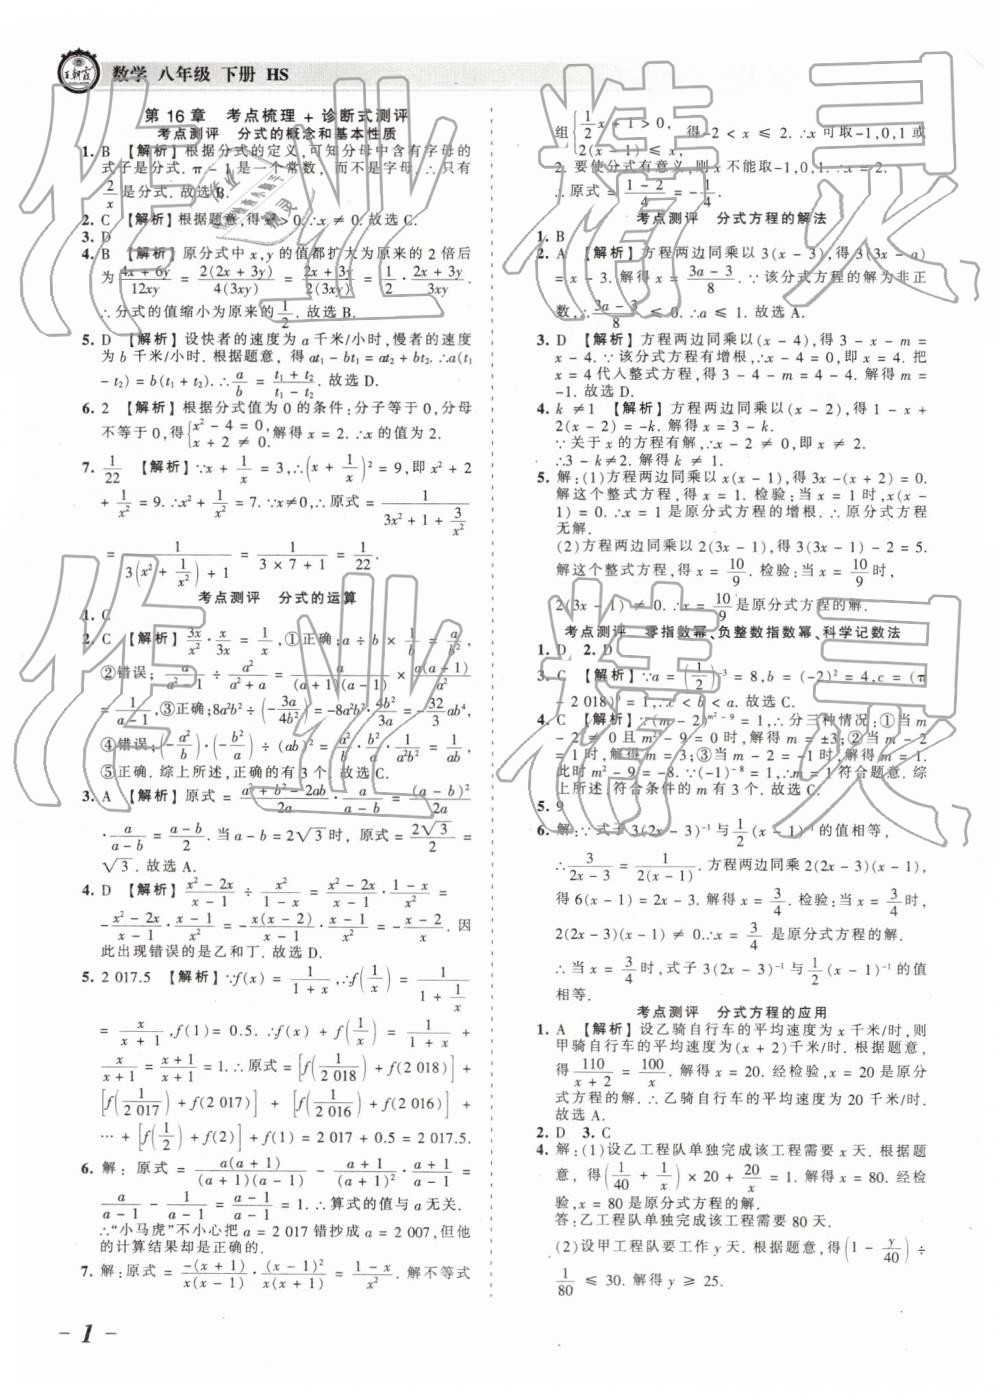 王朝霞
数学 八年级 下册 HS
第16章 考点梳理 + 诊断式测评
考点测评 分式的概念和基本性质
1. B 【解析】根据分式的定义,可知分母中含有字母的
式子是分式. π - 1 是一个常数, 而不是字母. ∴ 只有
2/x 是分式. 故选 B.
2. C 【解析】根据题意,得 x² > 0. ∴ x ≠ 0. 故选 C.
3. D
4. B 【解析】原分式中 x, y 的值都扩大为原来的 2 倍后
为 (4x + 6y)/(12xy) = 2(2x + 3y)/(4(3xy)) = (2x + 3y)/(2(3xy)) = 1/2 · (2x + 3y)/(3xy).
∴ 分式的值缩小为原来的 1/2. 故选 B.
5. D 【解析】设快者的速度为 a 千米/小时,慢者的速度
为 b 千米/小时. 根据题意, 得 at₁ - bt₁ = at₂ + bt₂. ∴ a(t₁
- t₂) = b(t₁ + t₂). ∴ a/b = (t₁ + t₂)/(t₁ - t₂). 故选 D.
6. 2 【解析】根据分式值为 0 的条件:分子等于 0, 分母
不等于 0, 得 { x² - 4 = 0, x + 2 ≠ 0. 解得 x = 2. ∴ x 的值为 2.
7. 1/22 【解析】∵ x + 1/x = 3, ∴ (x + 1/x)² = 9, 即 x² + 2
+ 1/x² = 9. ∴ x² + 1/x² = 7. ∵ x≠0, ∴ 原式 = 1/(3x² + 1 + 3/x²)
= 1/(3(x² + 1/x²) + 1) = 1/(3 × 7 + 1) = 1/22.
考点测评 分式的运算
1. C
2. C 【解析】3x/x² · x/3x = 1/x, ①正确; a ÷ b × 1/b = a/b²,
②错误; a/(a² - 1) ÷ a²/(a² + a) = a/((a + 1)(a - 1)) · a(a + 1)/a² =
1/(a - 1), ③正确; 8a²b² ÷ (-3a/4b²) = -8a²b² · 4b²/3a = -32/3 ab⁴,
④错误; (-a²/b) · (-b²/a) ÷ (ab)² = a²/b · b²/a · 1/a²b² = 1/ab,
⑤正确. 综上所述,正确的有 3 个. 故选 C.
3. A 【解析】原式 = (a² + b² - 2ab)/2a · a/(a - b) = (a - b)²/2a
· a/(a - b) = (a - b)/2. 当 a - b = 2√3 时, 原式 = 2√3/2 =
√3. 故选 A.
4. D 【解析】(x² - 2x)/(x - 1) ÷ x²/(1 - x) = (x² - 2x)/(x - 1) · (1 - x)/x² =
-(x² - 2x)/(x - 1) · (x - 1)/x² = -x(x - 2)/(x - 1) · (x - 1)/x² = -(x - 2)/x. 因
此出现错误的是乙和丁. 故选 D.
5. 2 017.5 【解析】∵ f(x) = 1/(1 + x), ∴ f(1/x) = 1/(1 + 1/x)
= x/(x + 1), f(1) = 0.5. ∴ f(x) + f(1/x) = 1/(x + 1) +
x/(x + 1) = (x + 1)/(x + 1) = 1. ∴ 原式 = [f(1/2 018) + f(2 018)] +
[f(1/2 017) + f(2 017)] + [f(1/2 016) + f(2 016)] +
… + [f(1/2) + f(2)] + f(1) = 2 017 + 0.5 = 2 017.5.
6. 解: 原式 = a(a + 1)/((a + 1)(a - 1)) - (a + 1)/(a + 1)² · (a + 1)/(a - 1) =
a/(a - 1) - 1/(a - 1) = (a - 1)/(a - 1) = 1. ∴ 算式的值与 a 无关.
∴“小马虎”不小心把 a = 2 017 错抄成 a = 2 007, 但他
的计算结果却是正确的.
7. 解: 原式 = -(x + 1)/(x(x - 1)) · (x - 1)²/(x(x + 1)) = (1 - x)/x². 解不等式
组 { 1/2 x + 1 > 0, 2(x - 1) ≤ x, 得 -2 < x ≤ 2. ∴ x 可取 -1, 0, 1 或
2. 要使分式有意义, 则 x 不能取 -1, 0, 1. ∴ x = 2.
∴ 原式 = (1 - 2)/4 = -1/4.
考点测评 分式方程的解法
1. B
2. A 【解析】方程两边同乘以 3(x - 3), 得 3(3x - a)
= x - 3. 解得 x = (3a - 3)/8. ∵ 该分式方程的解为非正
数, ∴ (3a - 3)/8 ≤ 0. ∴ a ≤ 1. 故选 A.
3. D 【解析】方程两边同乘以 (x - 4), 得 3 - x - m =
x - 4. ∵ 该分式方程有增根, ∴ x - 4 = 0, 即 x = 4. 把
x = 4 代入整式方程, 得 3 - 4 - m = 4 - 4. 解得 m =
-1. 故选 D.
4. k ≠1 【解析】方程两边同乘以 (x - 2), 得 1 +
2(x - 2) = -k. 解得 x = 3 - k.
∵ 关于 x 的方程有解, ∴ x - 2 ≠ 0, 即 x ≠ 2.
∴ 3 - k≠2. 解得 k ≠ 1.
5. 解: (1)方程两边同乘以 x(x - 1), 得 3x -(x + 2) = 0.
解这个整式方程, 得 x = 1. 检验: 当 x = 1 时, x(x -
1) = 0. ∴ x = 1 是原分式方程的增根. ∴ 原分式方程
无解.
(2)方程两边同乘以 2(3x - 1), 得 3(3x - 1) - 2 = 5.
解这个整式方程, 得 x = 10/9. 检验: 当 x = 10/9 时,
2(3x - 1) ≠ 0. ∴ x = 10/9 是原分式方程的解.
考点测评 零指数幂、负整数指数幂、科学记数法
1. D 2. D
3. C 【解析】∵ a = (1/2)⁻³ = 8, b = (-2)² = 4, c = (π
- 2 018)⁰ = 1, ∴ c < b < a. 故选 C.
4. C 【解析】∵ (m - 2)^(m² - 9) = 1, ∴ 分三种情况: ①当 m
- 2 ≠ 0 且 m² - 9 = 0 时, 解得 m = ±3; ②当 m - 2
= 1 时, 解得 m = 3; ③当 m - 2 = -1 时, 解得 m = 1.
此时 m² - 9 = -8. ∵ (-1)⁻⁸ = 1, ∴ m = 1 符合题意. 综
上所述, 符合条件的 m 有 3 个. 故选 C.
5. 9
6. 解: ∵ 式子 3(2x - 3)⁻¹ 与 1/2 (x - 1)⁻¹ 的值相等,
∴ 3/(2x - 3) = 1/(2(x - 1)). 方程两边同乘 2(2x - 3)(x - 1),
得 6(x - 1) = 2x - 3. 解得 x = 3/4. 检验: 当 x = 3/4 时,
2(2x - 3)(x - 1) ≠ 0. ∴ x = 3/4 是原分式方程的解.
∴ 当 x = 3/4 时, 式子 3(2x - 3)⁻¹ 与 1/2 (x - 1)⁻¹ 的值
相等.
考点测评 分式方程的应用
1. A 【解析】设乙骑自行车的平均速度为 x 千米/时, 则
甲骑自行车的平均速度为 (x + 2) 千米/时. 根据题意,
得 110/(x + 2) = 100/x. 解得 x = 20. 经检验, x = 20 是原分
式方程的解. ∴ 乙骑自行车的平均速度为 20 千米/时.
故选 A.
2. D 3. C
4. 解: (1)设乙工程队单独完成该工程需要 x 天. 根据题
意, 得 (1/40 + 1/x) × 20 + 20/x = 1. 解得 x = 80. 经检
验, x = 80 是原分式方程的解.
答: 乙工程队单独完成该工程需要 80 天.
(2)设甲工程队要工作 y 天. 根据题意, 得 (1 - y/40) ÷
1/80 ≤ 30. 解得 y ≥ 25.
- 1 -
作业精灵
作业精灵